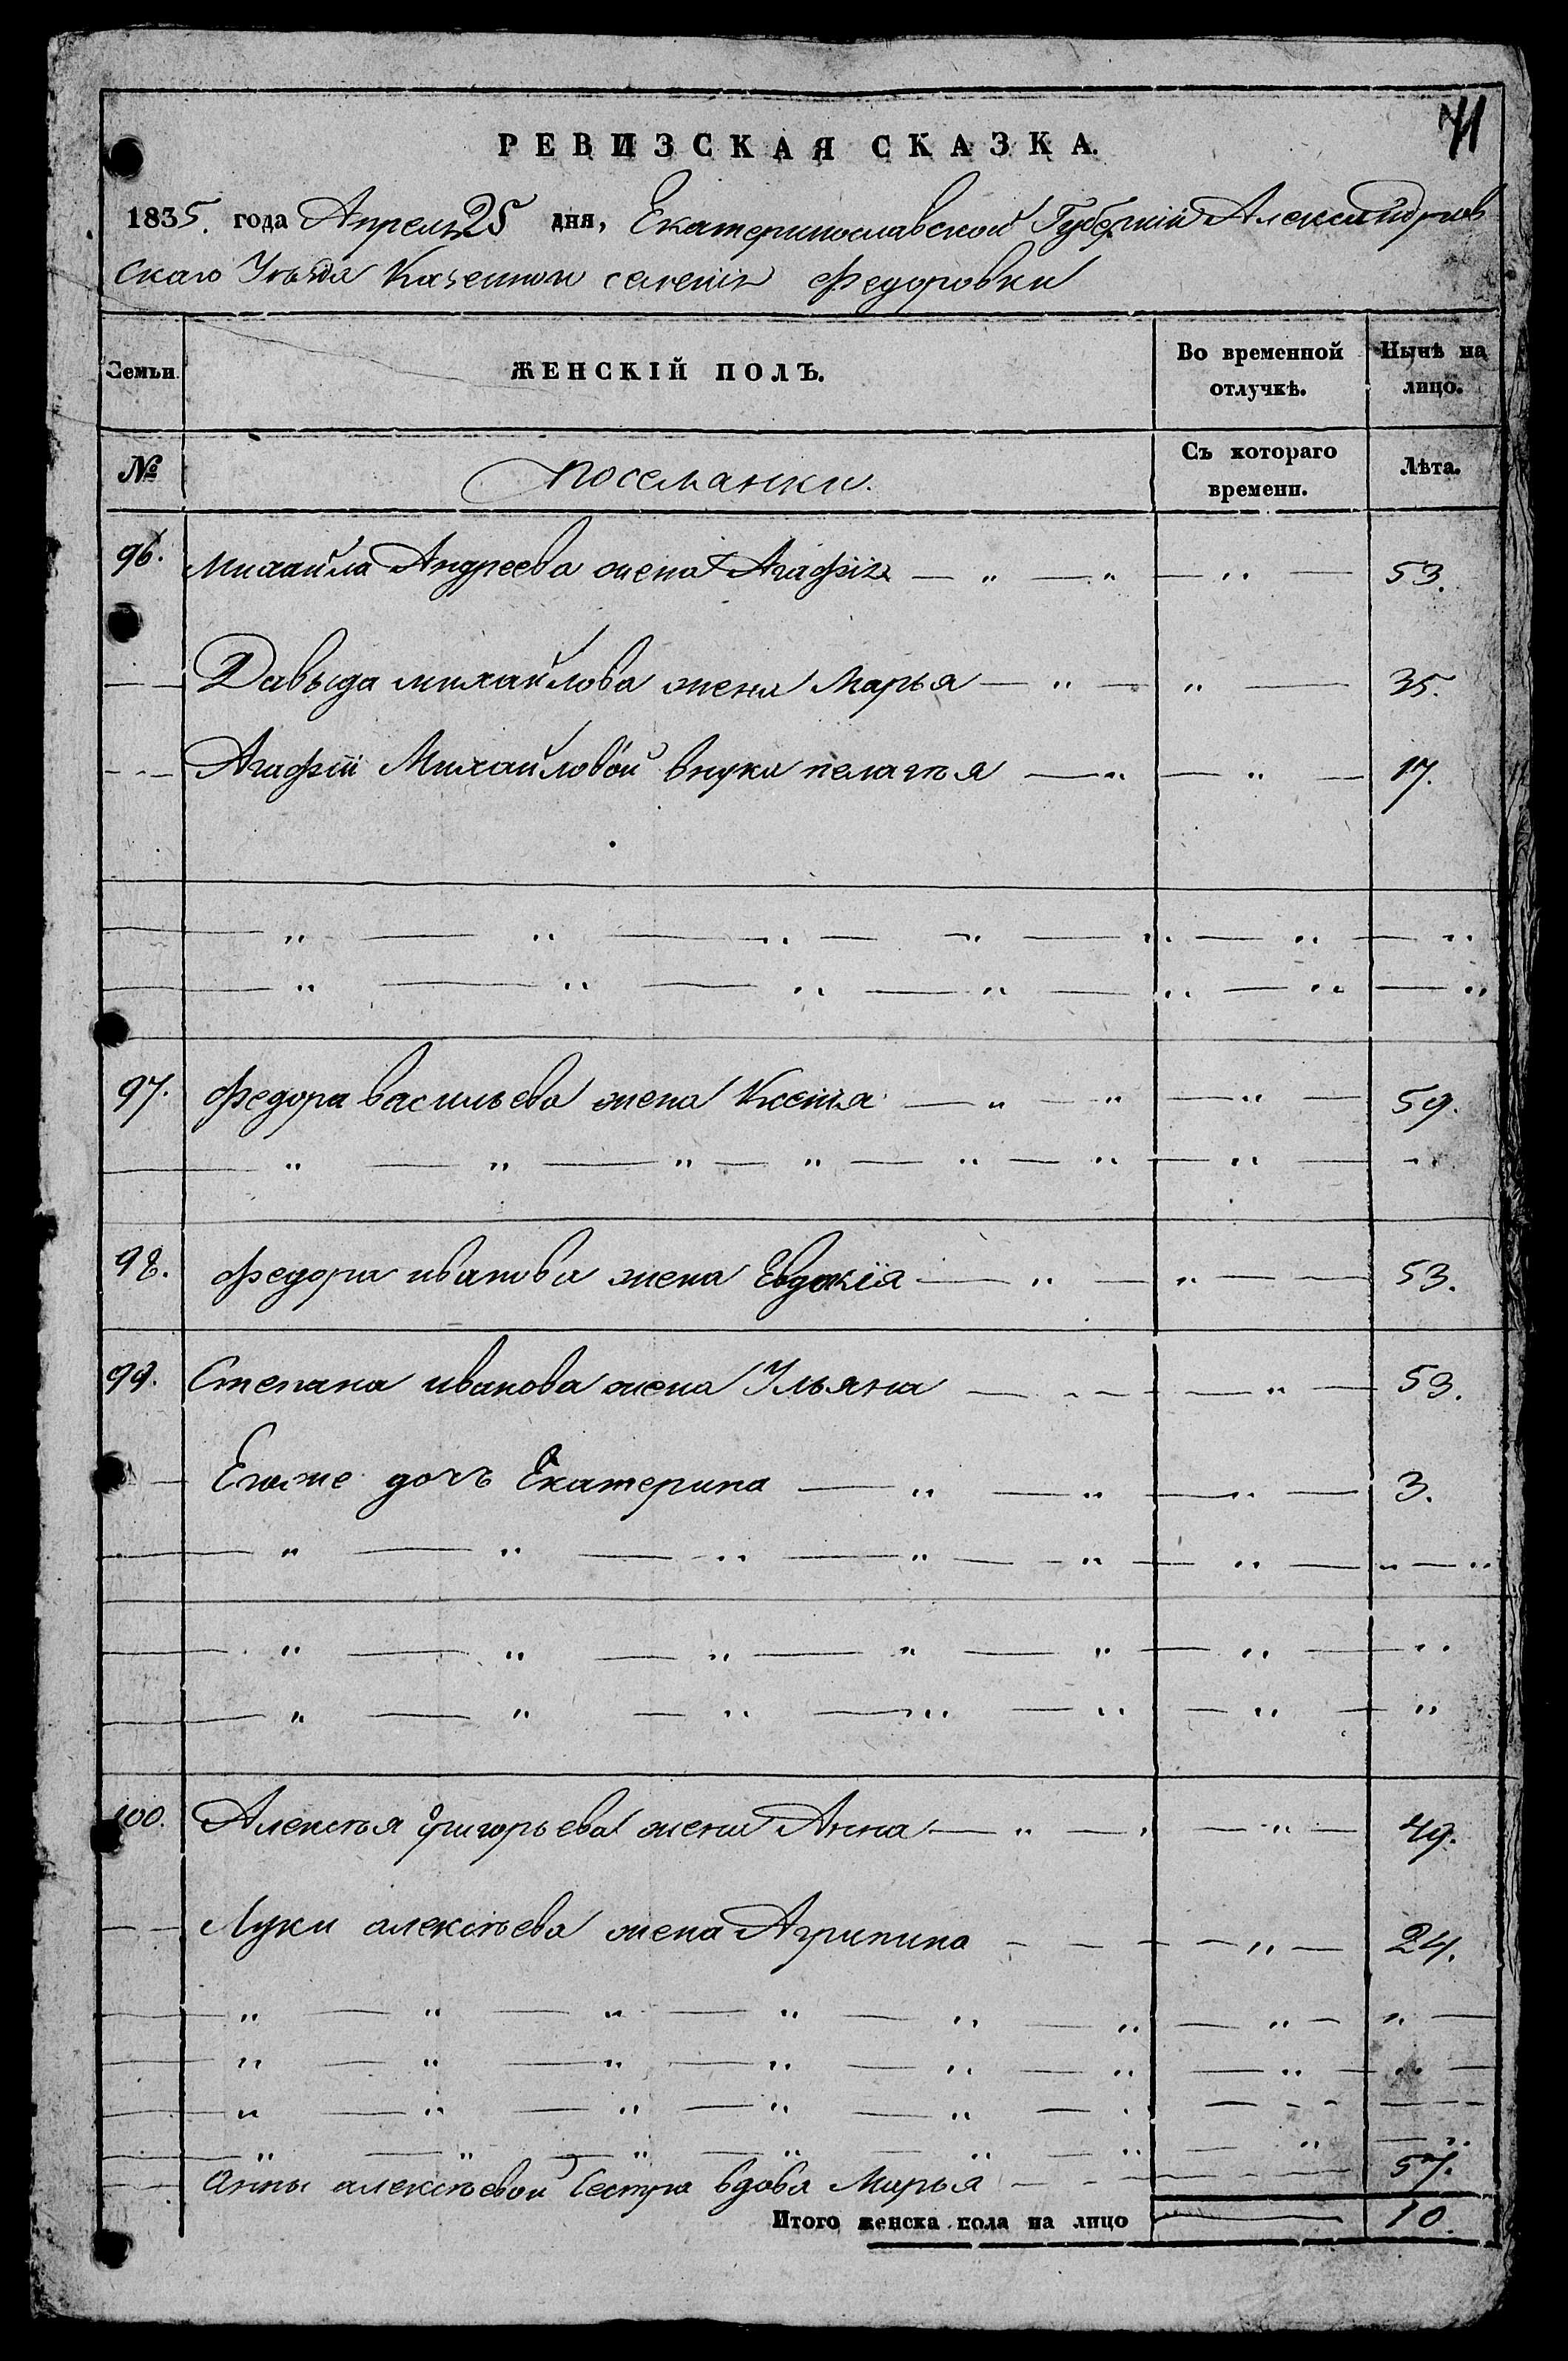 71
РЕВИЗСКАЯ СКАЗКА.
1835. года Апреля 25 дня, Екатеринославской Губерніи Александров
скаго Уѣзда Казенного селенія Федоровки
Семьи. ЖЕНСКІЙ ПОЛЪ. Во временной отлучкѣ. Нынѣ на лицо.
№ Поселянки. Съ котораго времени. Лѣта.
96. Михайла Андреева жена Агафія — " — " — " — 53.
— — Давыда михайлова жена Марья — " — " — 35.
— — Агафіи Михайловой внука пелагѣя — " — " — 17.
— " — " — " — " — " — " — "
— " — " — " — " — " — " — "
97. Федора васильева жена Ксенія — " — " — " — 59.
— " — " — " — " — " — " — " — "
98. Федора иванова жена Евдокія — " — " — — 53.
99. Степана иванова жена Ульяна — - - — " — 53.
— Егоже дочь Екатерина — " — " — " — 3.
— " — " — " — " — " — " — " — "
— " — " — " — " — " — " — "
— " — " — " — " — " — " — "
100. Алексѣя григорьева жена Анна — " — " — " — 49.
— — Луки алексѣева жена Агрипина - — - — " — 24.
— " — " — " — " — " — " — " — " —
— " — " — " — " — " — " — " — " —
— " — " — " — " — " — " — - - — - -
— " — " — " — " — " — " — " — "
— — Анны алексѣевой сестра вдова Марья — - - — - — 57.
Итого женска пола на лицо — 10.